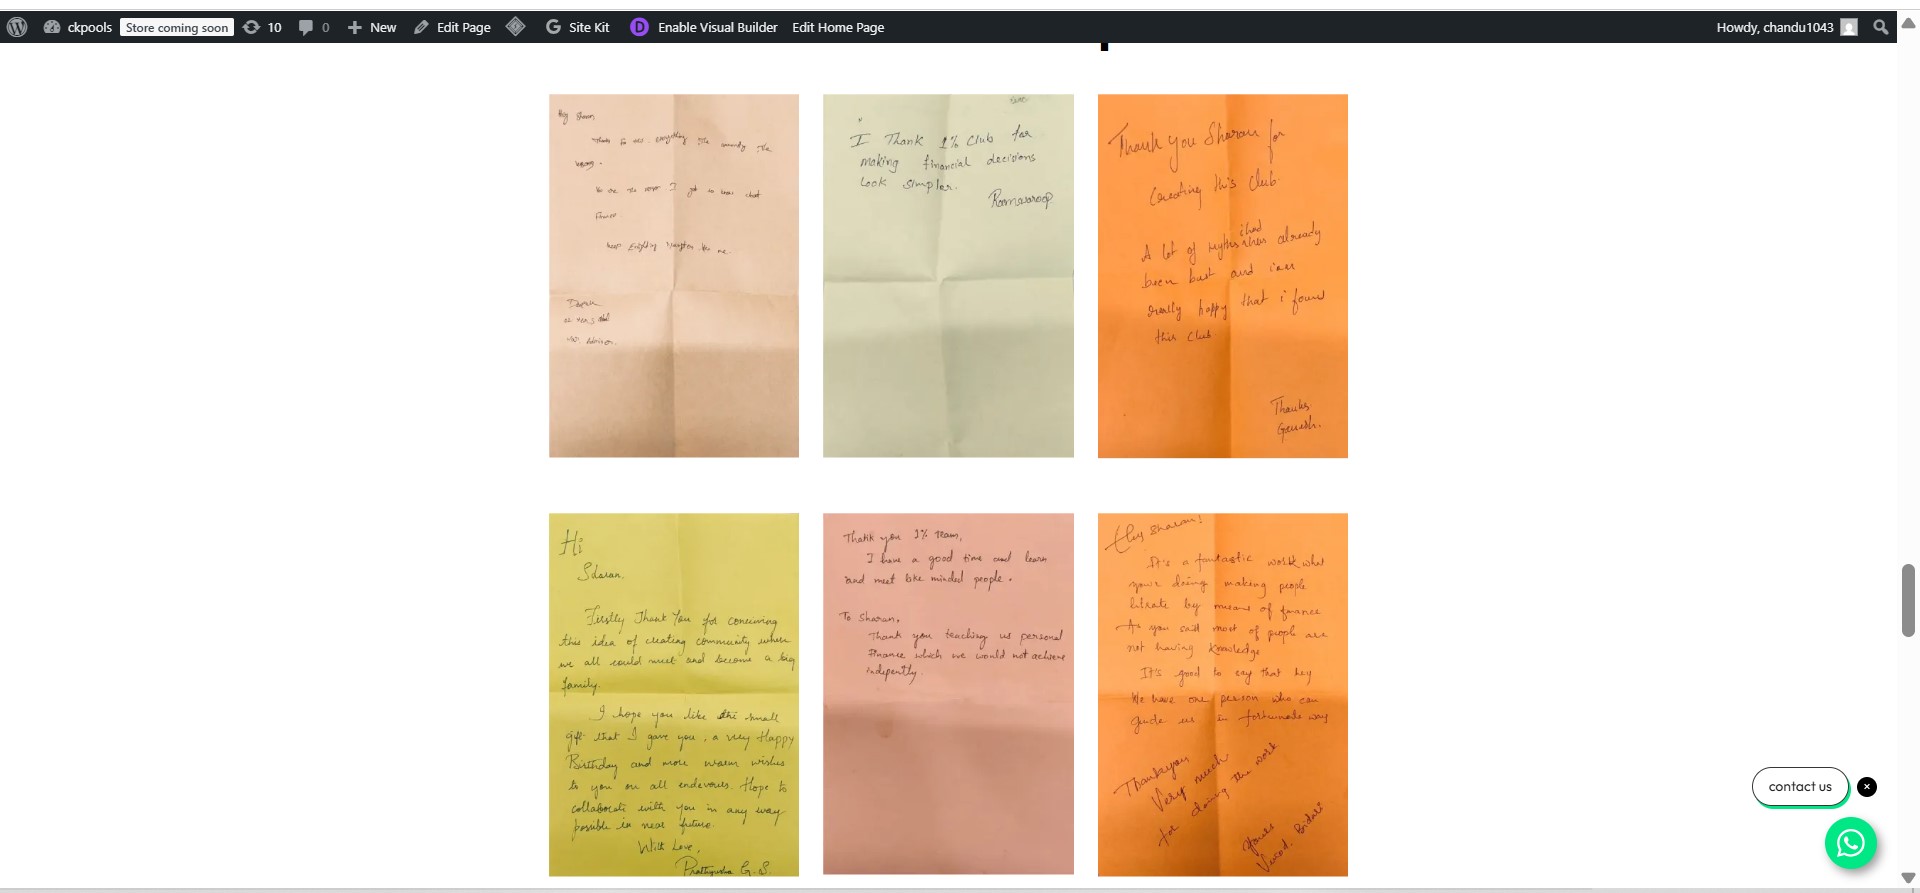 ckpools Store coming soon 10 0 New Edit Page Site Kit Enable Visual Builder Edit Home Page Howdy, chandu1043
Hey Sharan
Thanks for everything The comedy The
You are the reason I got to know about
Finance
keep Everything like me
I Thank 1% Club for
making financial decisions
Look simpler.
Ramswaroop
Thank you Sharan for
Creating this Club
i had
A lot of myths already
been bust and i am
really happy that i found
this Club
Thanks.
Ganesh.
Hi
Sharan,
Firstly Thank You for conceiving
this idea of creating community where
we all could meet and become a big
family.
I hope you like the small
gift that I gave you, a very Happy
Birthday and more warm wishes
to you on all endevores. Hope to
collaborate with you in any way
possible in near future.
With Love,
Prathyusha G.S.
Thank you 1% team,
I have a good time and learn
and meet like minded people.
To Sharan,
Thank you teaching us personal
Finance which we would not achieve
indepently.
Hey Sharan!
It's a fantastic work what
your doing making people
litrate by means of finance
As you said most of people are
not having knowledge
It's good to say that hey
We have one person who can
guide us in fortunate way
Thankyou
Very much
for doing the work
Yours
Vinod.
contact us